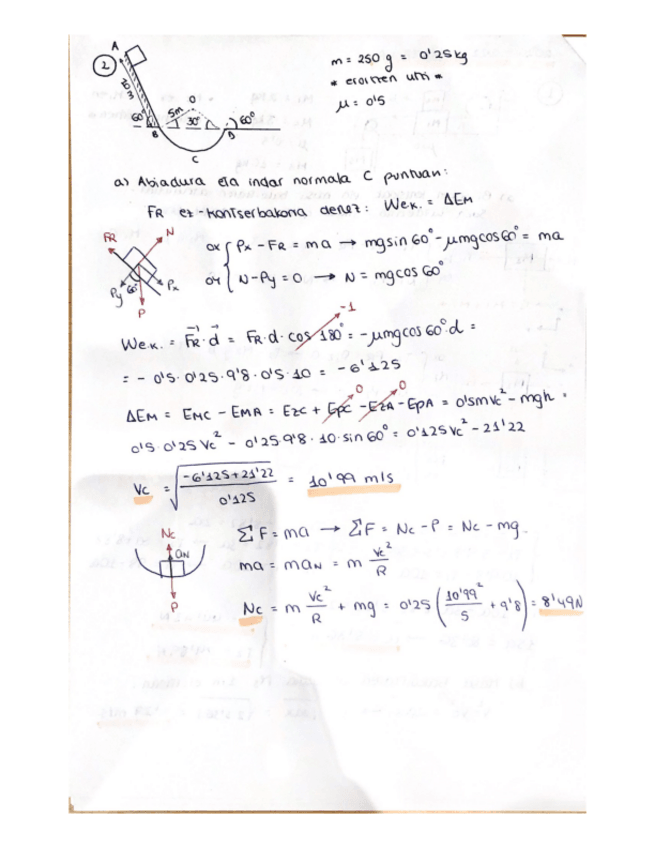 2
A
10 m
60°
5m
O
30°
60°
B
D
C
m = 250 g = 0'25 kg
* erortzen utzi *
μ = 0'5
a) Abiadura eta indar normala C puntuan:
FR ez-kontserbakorra denez: Wek. = ΔEM
FR
N
Py
60°
Px
P
ox { Px - FR = ma → mg sin 60° - μmg cos 60° = ma
oy { N - Py = 0 → N = mg cos 60°
-1
Wek. = FR · d = FR · d · cos 180° = -μmg cos 60° · d =
= - 0'5 · 0'25 · 9'8 · 0'5 · 10 = - 6'125
0 0
ΔEM = EMC - EMA = EZC + EPC - EZA - EPA = 0'5mVc² - mgh =
0'5 · 0'25 Vc² - 0'25 · 9'8 · 10 · sin 60° = 0'125 Vc² - 21'22
Vc = √((-6'125 + 21'22) / 0'125) = 10'99 m/s
Nc
aN
P
ΣF = ma → ΣF = Nc - P = Nc - mg.
ma = maN = m Vc²/R
Nc = m Vc²/R + mg = 0'25 (10'99²/5 + 9'8) = 8'49N